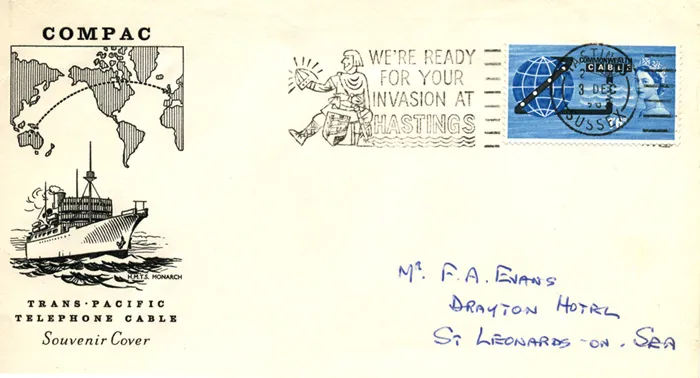 COMPAC
H.M.T.S. MONARCH
TRANS·PACIFIC
TELEPHONE CABLE
Souvenir Cover
WE'RE READY
FOR YOUR
INVASION AT
HASTINGS
COMMONWEALTH
CABLE
HASTINGS
3 DEC
SUSSEX
Mr. F.A. EVANS
DRAYTON HOTEL
ST LEONARDS-ON-SEA